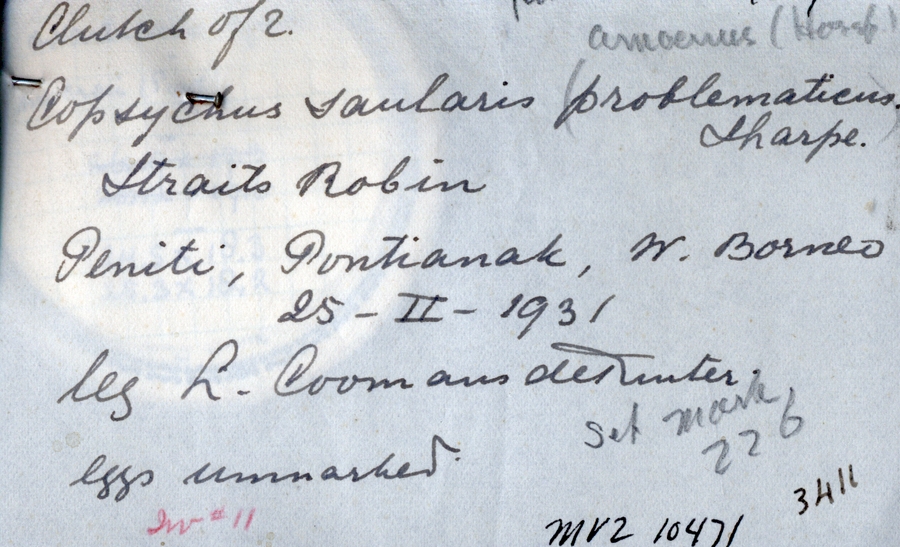 Clutch of 2.
amoenus (Horsf.)
Copsychus saularis (problematicus.
Sharpe.
Straits Robin
Peniti, Pontianak, W. Borneo
25 - II - 1931
leg L. Coomans de Ruiter.
Set mark
226
eggs unmarked.
3411
Inv # 11
MVZ 10471